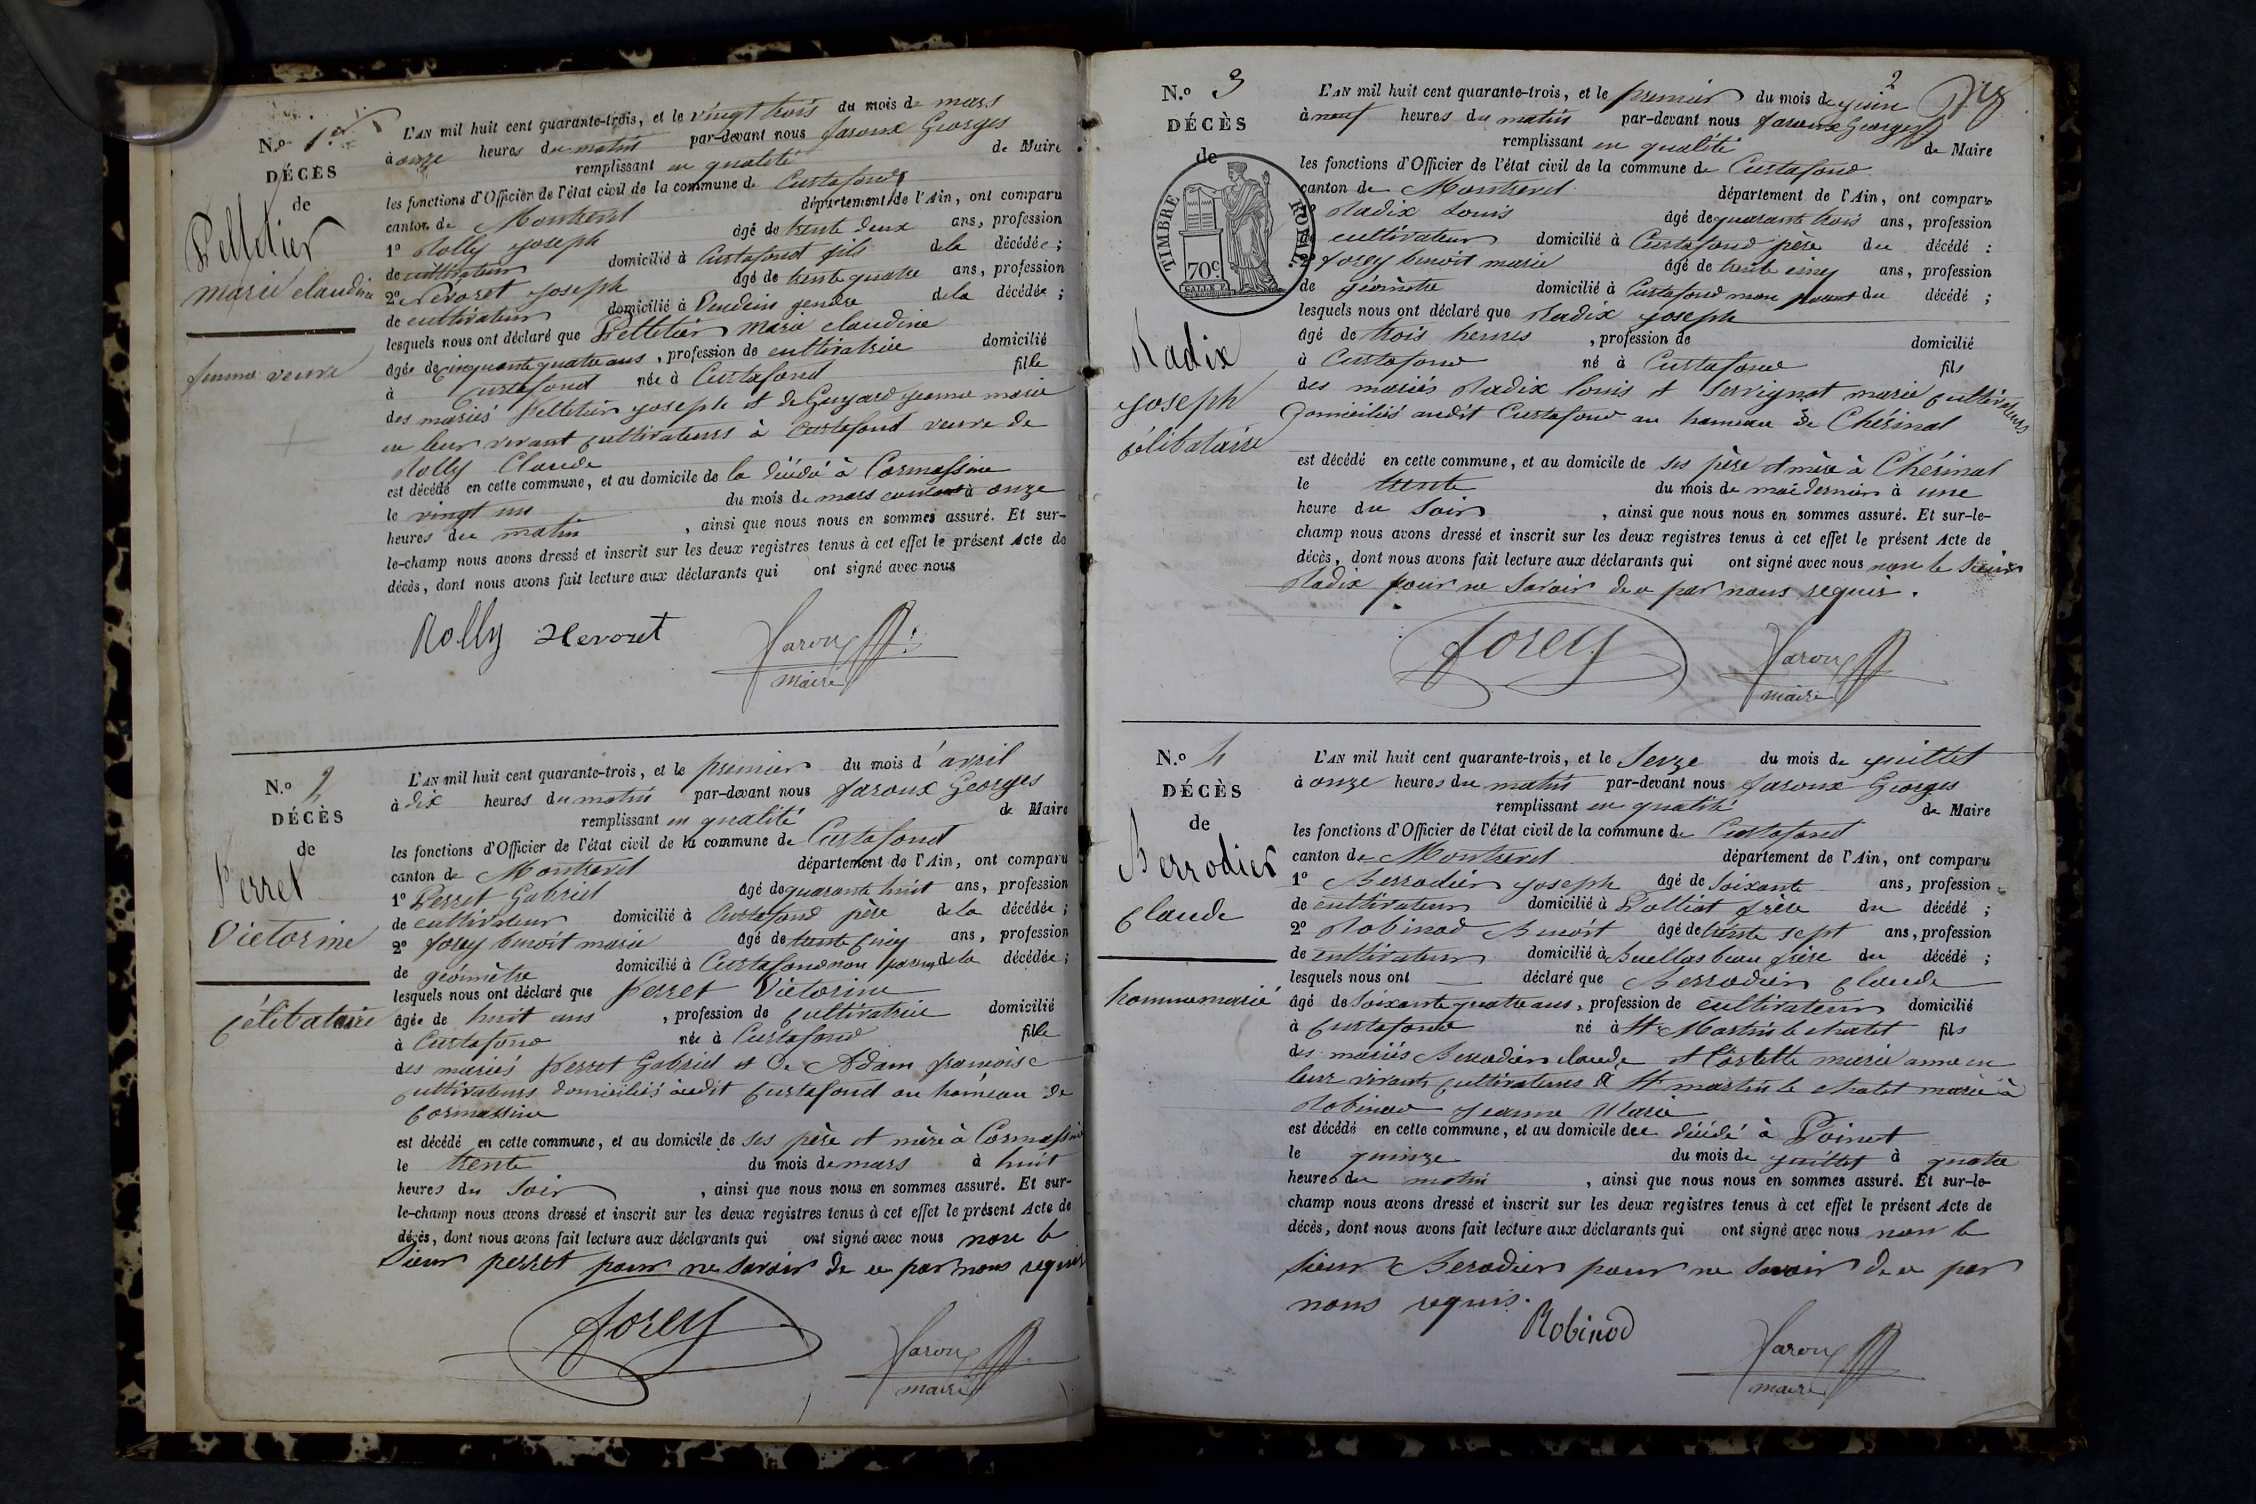 N.o 1er
DÉCÈS
de
Pelletier
marie claudine
femme veuve
L'AN mil huit cent quarante-trois, et le vingt trois du mois de mars
à onze heures du matin par-devant nous faroux Georges
remplissant en qualité de Maire
les fonctions d'Officier de l'état civil de la commune de Curtafond
canton de Montrevel département de l'Ain, ont comparu
1o Rolly joseph âgé de trente deux ans, profession
de cultivateur domicilié à Curtafond fils de la décédée ;
2o Nevoret joseph âgé de trente quatre ans, profession
de cultivateur domicilié à Vandeins gendre de la décédée ;
lesquels nous ont déclaré que Pelletier marie claudine
âgée de cinquante quatre ans, profession de cultivatrice domicilié
à Curtafond née à Curtafond fille
des mariés Pelletier joseph et de Guyard jeanne marie
en leur vivant cultivateurs à Curtafond veuve de
Rolly Claude
est décédé en cette commune, et au domicile de la décédé à Cormassine
le vingt un du mois de mars courant à onze
heures du matin, ainsi que nous nous en sommes assuré. Et sur-
le-champ nous avons dressé et inscrit sur les deux registres tenus à cet effet le présent Acte de
décès, dont nous avons fait lecture aux déclarants qui ont signé avec nous
Rolly Nevoret Faroux
maire
N.o 2
DÉCÈS
de
Perret
Victorine
célibataire
L'AN mil huit cent quarante-trois, et le premier du mois d'avril
à dix heures du matin par-devant nous faroux Georges
remplissant en qualité de Maire
les fonctions d'Officier de l'état civil de la commune de Curtafond
canton de Montrevel département de l'Ain, ont comparu
1o Perret Gabriel âgé de quarante huit ans, profession
de cultivateur domicilié à Curtafond père de la décédée ;
2o forey benoit marie âgé de trente cinq ans, profession
de géomètre domicilié à Curtafond non parent de la décédée ;
lesquels nous ont déclaré que Perret Victorine
âgée de huit ans, profession de cultivatrice domicilié
à Curtafond née à Curtafond fille
des mariés Perret Gabriel et de Adam françoise
cultivateurs domiciliés audit Curtafond au hameau de
Cormassine
est décédé en cette commune, et au domicile de ses père et mère à Cormassine
le trente du mois de mars à huit
heures du soir, ainsi que nous nous en sommes assuré. Et sur-
le-champ nous avons dressé et inscrit sur les deux registres tenus à cet effet le présent Acte de
décès, dont nous avons fait lecture aux déclarants qui ont signé avec nous non le
sieur perret pour ne savoir de ce par nous requis
forey Faroux
maire
2
N.o 3
DÉCÈS
de
TIMBRE ROYAL
70c
Radix
joseph
célibataire
L'AN mil huit cent quarante-trois, et le premier du mois de juin
à neuf heures du matin par-devant nous faroux Georges
remplissant en qualité de Maire
les fonctions d'Officier de l'état civil de la commune de Curtafond
canton de Montrevel département de l'Ain, ont comparu
1o Radix Louis âgé de quarante trois ans, profession
de cultivateur domicilié à Curtafond père du décédé :
2o forey benoit marie âgé de trente cinq ans, profession
de géomètre domicilié à Curtafond non parent du décédé ;
lesquels nous ont déclaré que Radix joseph
âgé de trois heures, profession de domicilié
à Curtafond né à Curtafond fils
des mariés Radix louis et Servignat marie cultivateurs
domiciliés audit Curtafond au hameau de Chérinal
est décédé en cette commune, et au domicile de ses père et mère à Chérinal
le trente du mois de mai dernier à une
heure du soir, ainsi que nous nous en sommes assuré. Et sur-le-
champ nous avons dressé et inscrit sur les deux registres tenus à cet effet le présent Acte de
décès, dont nous avons fait lecture aux déclarants qui ont signé avec nous non le sieur
Radix pour ne savoir de ce par nous requis.
forey Faroux
maire
N.o 4
DÉCÈS
de
Berrodier
Claude
homme marié
L'AN mil huit cent quarante-trois, et le seize du mois de juillet
à onze heures du matin par-devant nous faroux Georges
remplissant en qualité de Maire
les fonctions d'Officier de l'état civil de la commune de Curtafond
canton de Montrevel département de l'Ain, ont comparu
1o Berrodier joseph âgé de soixante ans, profession
de cultivateur domicilié à Polliat frère du décédé ;
2o Robinod Benoit âgé de trente sept ans, profession
de cultivateur domicilié à Buellas beau frère du décédé ;
lesquels nous ont déclaré que Berrodier claude
âgé de soixante quatre ans, profession de cultivateur domicilié
à Curtafond né à St Martin le chatel fils
des mariés Berrodier claude et Cortette marie anne en
leur vivant cultivateurs à St martin le chatel marié à
Robinod jeanne Marie
est décédé en cette commune, et au domicile de ce décédé à Poinet
le quinze du mois de juillet à quatre
heures du matin, ainsi que nous nous en sommes assuré. Et sur-le-
champ nous avons dressé et inscrit sur les deux registres tenus à cet effet le présent Acte de
décès, dont nous avons fait lecture aux déclarants qui ont signé avec nous non le
sieur Berodier pour ne savoir de ce par
nous requis.
Robinod Faroux
maire